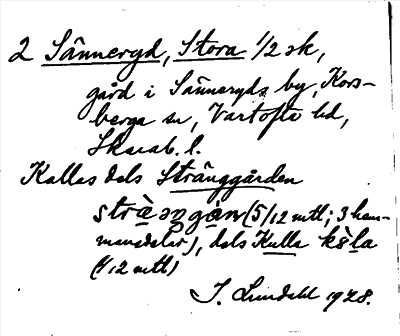 2 Sänneryd, Stora 1/2 sk,
gård i Sänneryds by, Kors-
berga sn, Vartofta hd,
Skarab. l.
Kallas dels Stränggården
(5/12 mtl; 3 hem-
mansdelar), dels Kulla
(1/12 mtl)
J. Lundahl 1928.